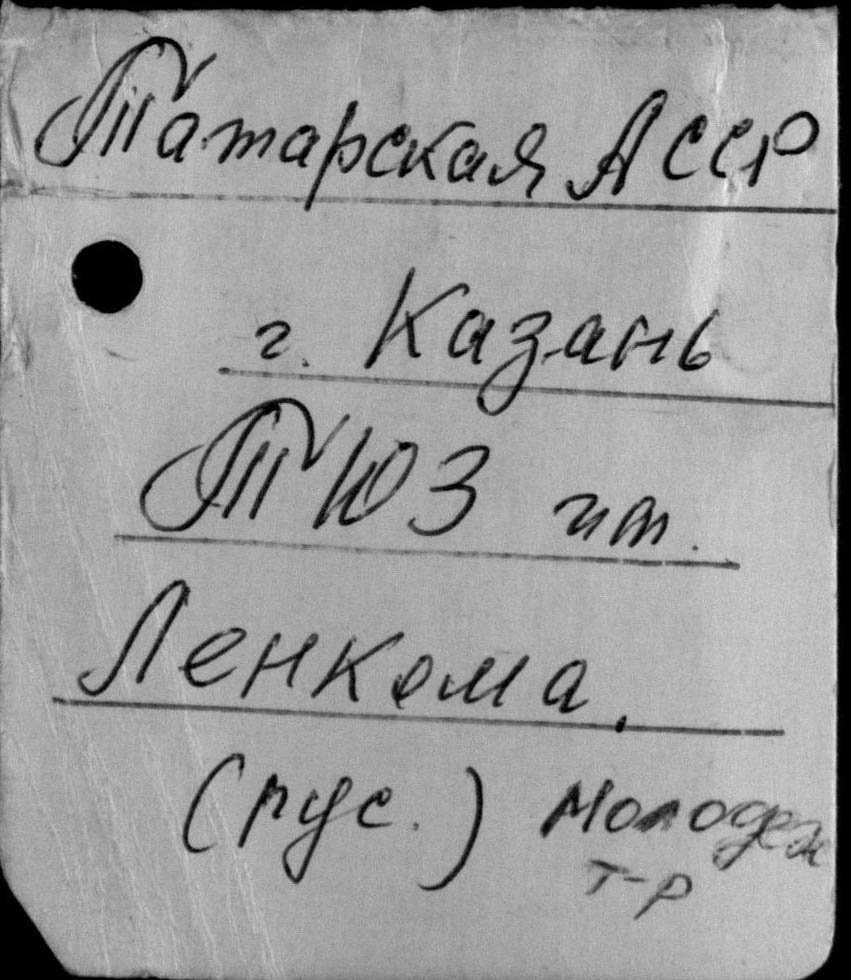 Татарская АССР
г. Казань
ТЮЗ им.
Ленкома.
(рус.) Молодеж
т-р